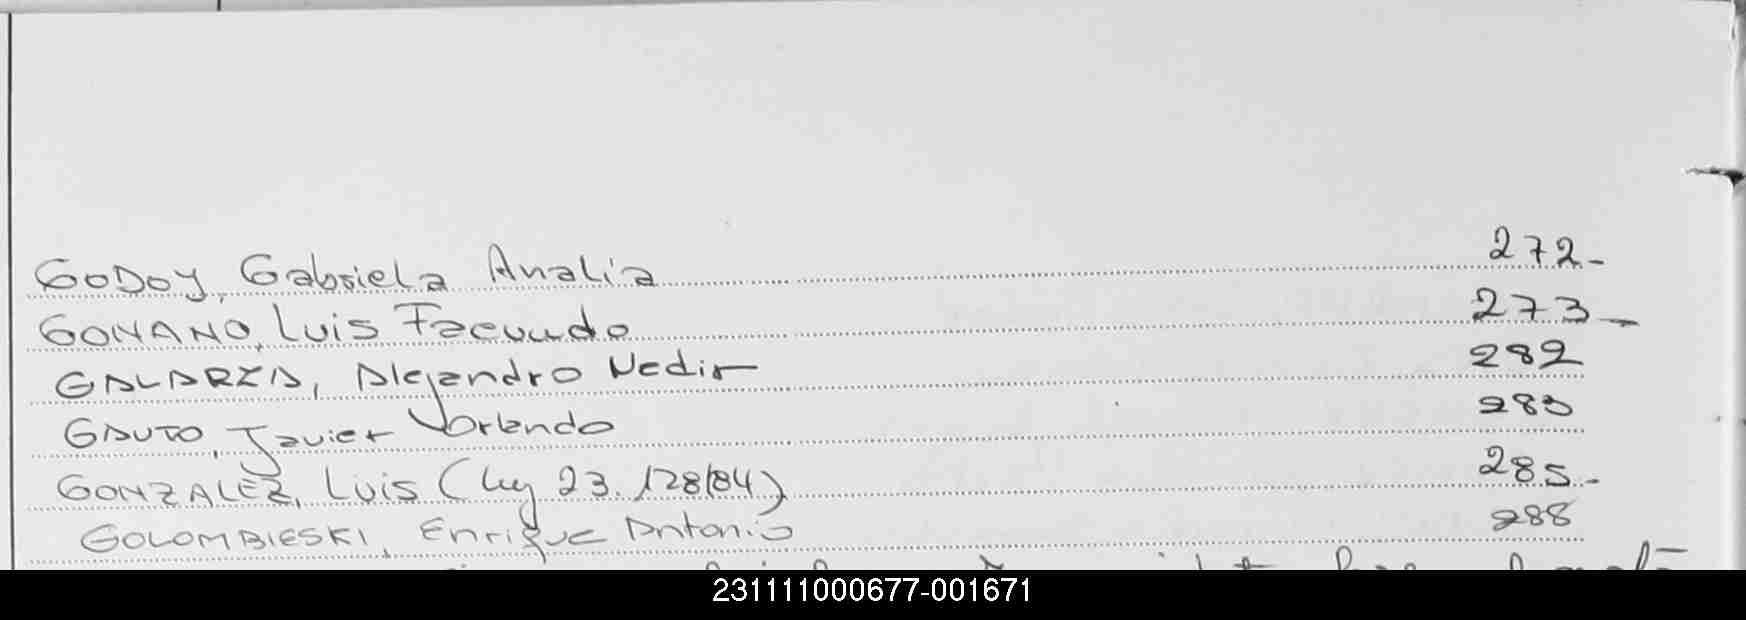 GODOY, Gabriela Analia 272-
GONANO, Luis Facundo 273-
GALARZA, Alejandro Nedir 282
GAUTO, Javier Orlando 283
GONZALEZ, Luis (Ley 23.128/84) 285-
GOLOMBIESKI, Enrique Antonio 288
231111000677-001671